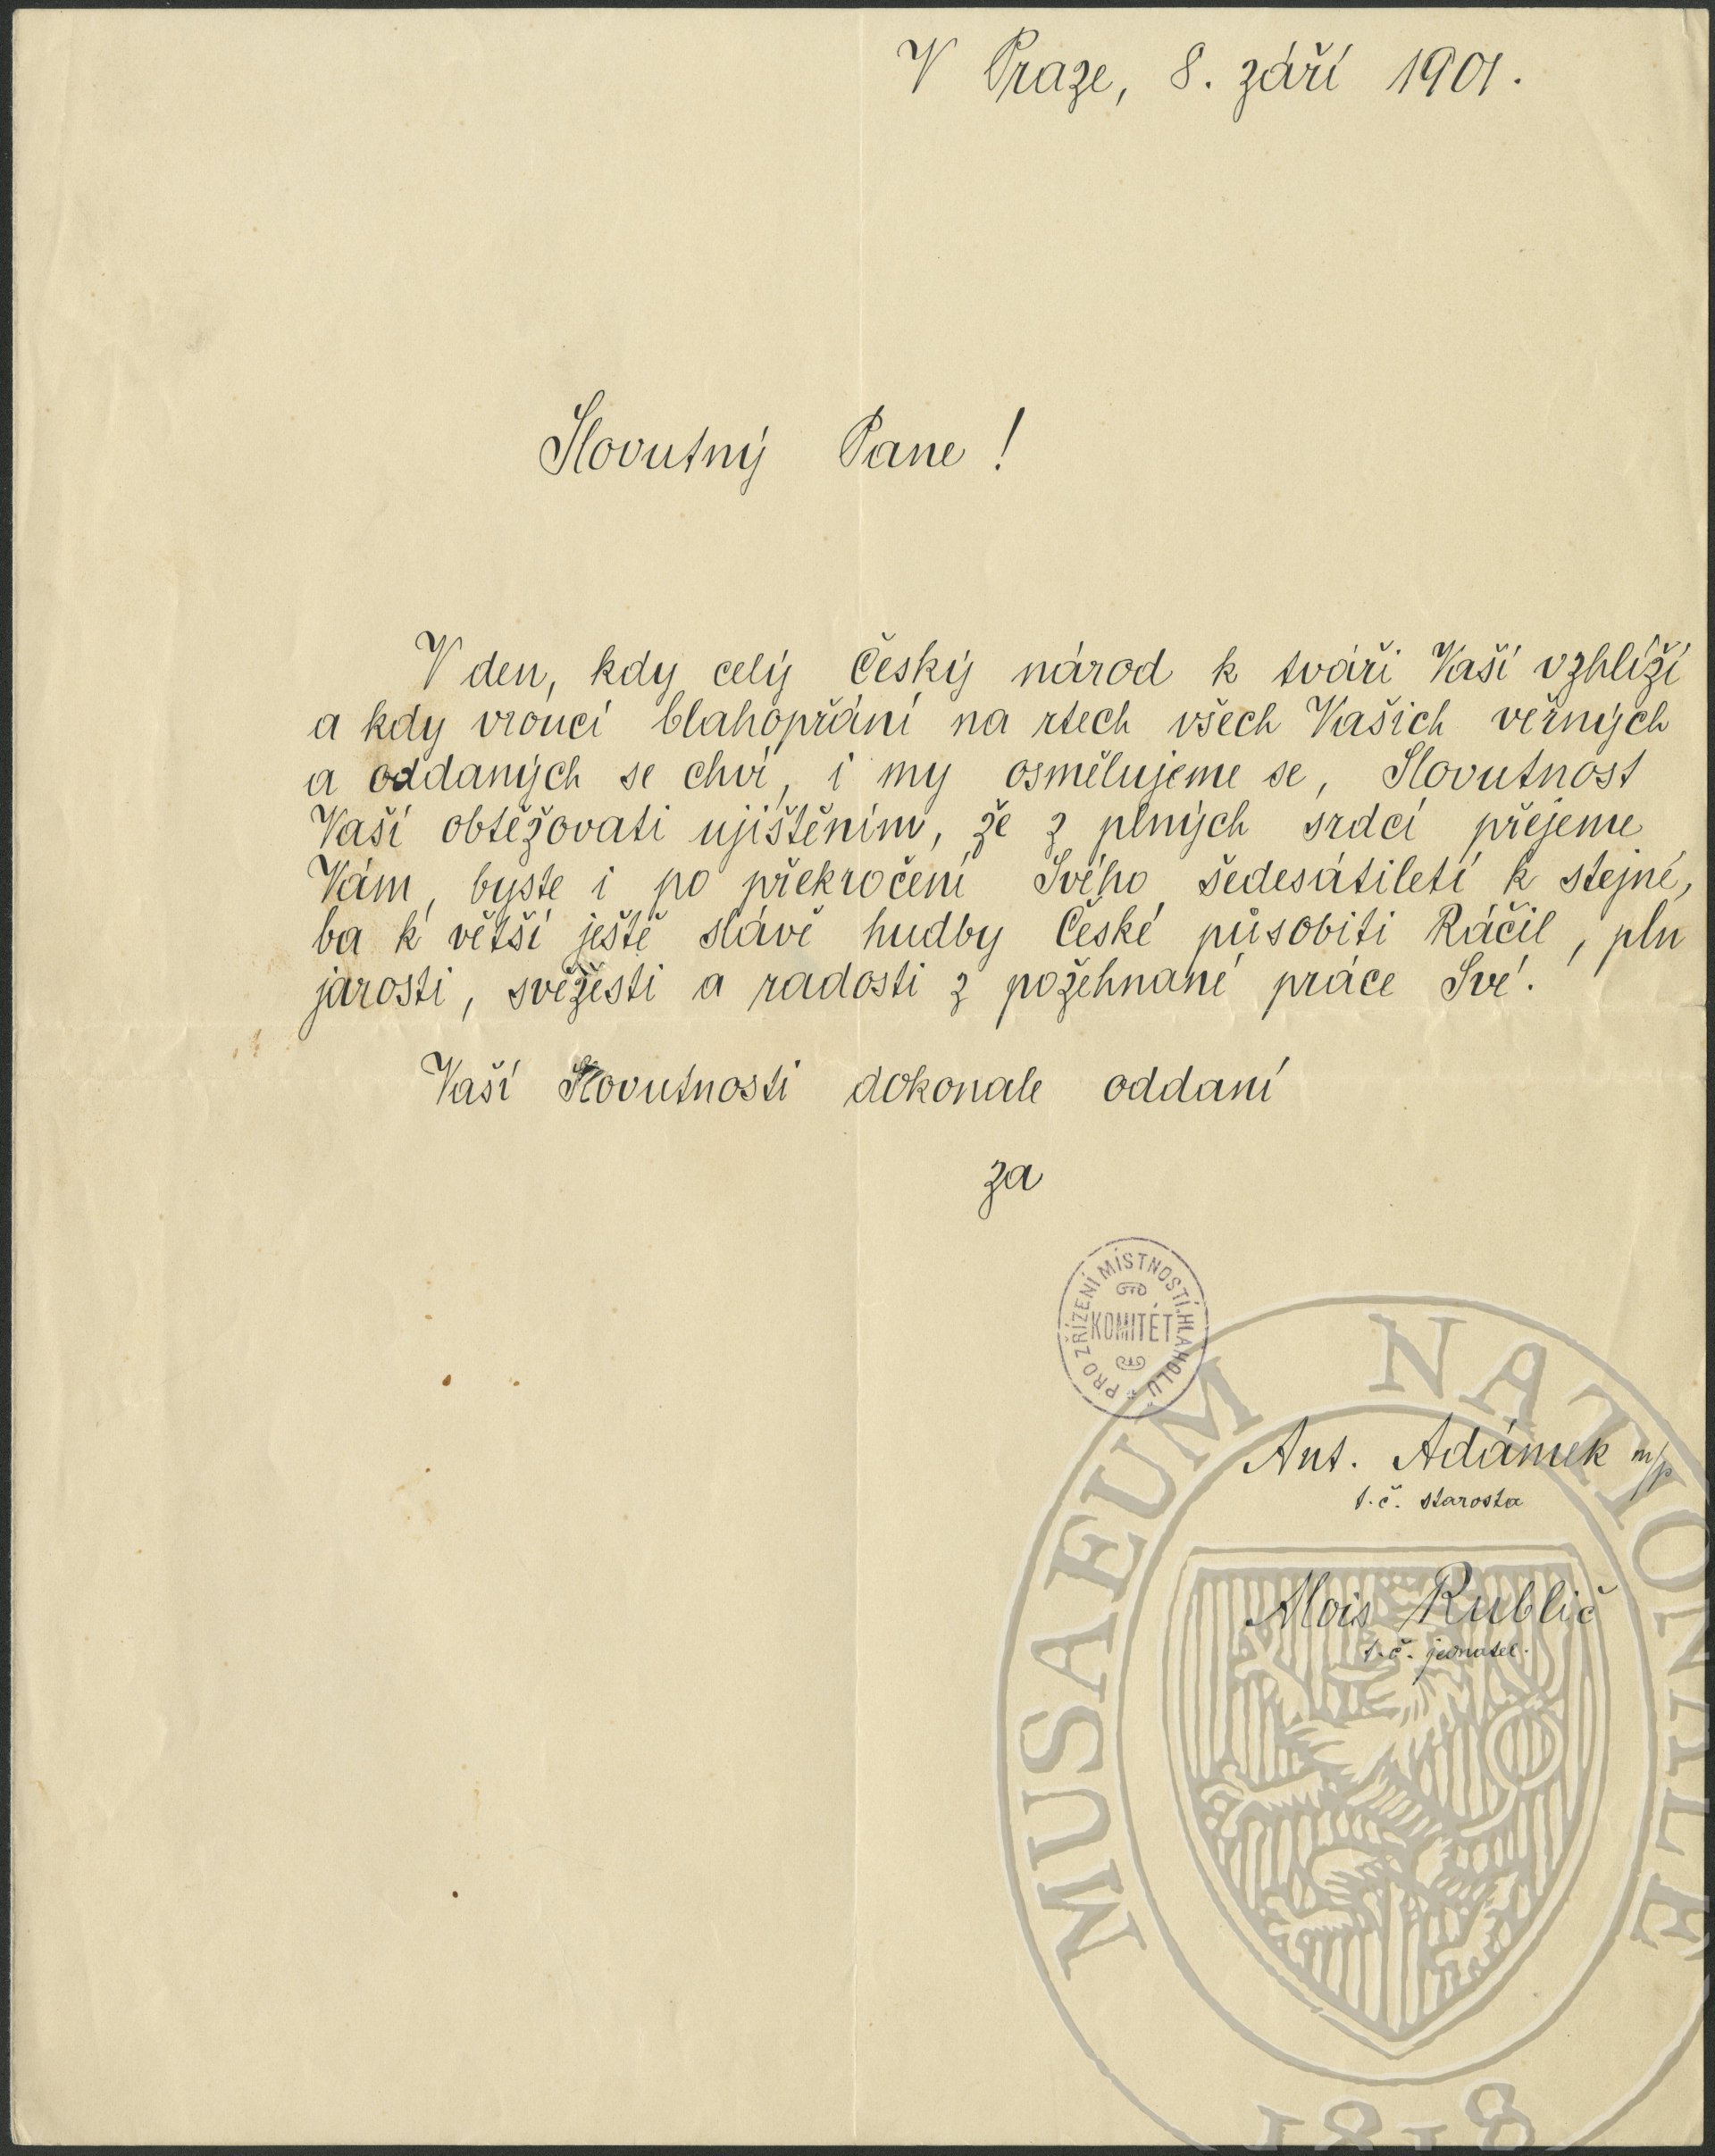 V Praze, 8. září 1901.
Slovutný Pane!
V den, kdy celý Český národ k tváři Vaší vzhlíží
a kdy vroucí blahopřání na rtech všech Vašich věrných
a oddaných se chví, i my osmělujeme se, Slovutnost
Vaší obtěžovati ujištěním, že z plných srdcí přejeme
Vám, byste i po překročení Svého šedesátiletí k stejné,
ba k větší ještě slávě hudby České působiti Ráčil, pln
jarosti, svěžesti a radosti z požehnané práce Své.
Vaší Slovutnosti dokonale oddaní
za
PRO ZŘÍZENÍ MÍSTNOSTÍ „HLAHOLU“
KOMITÉT
Ant. Adámek m/p
t. č. starosta
Alois Rublič
t. č. jednatel.
MUSAEUM NATIONALE
1818